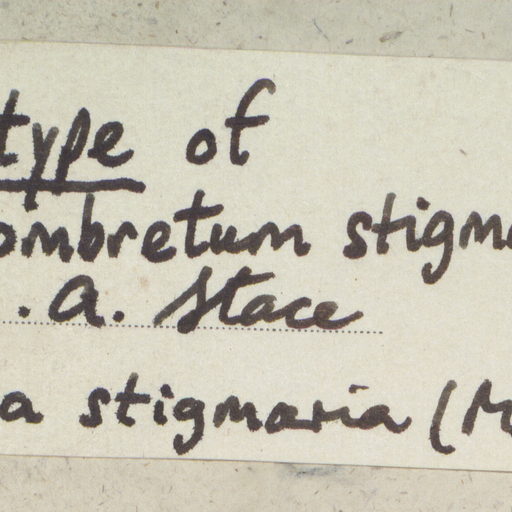 type of
ombretum stigm
. A. Stace
a stigmaria (M